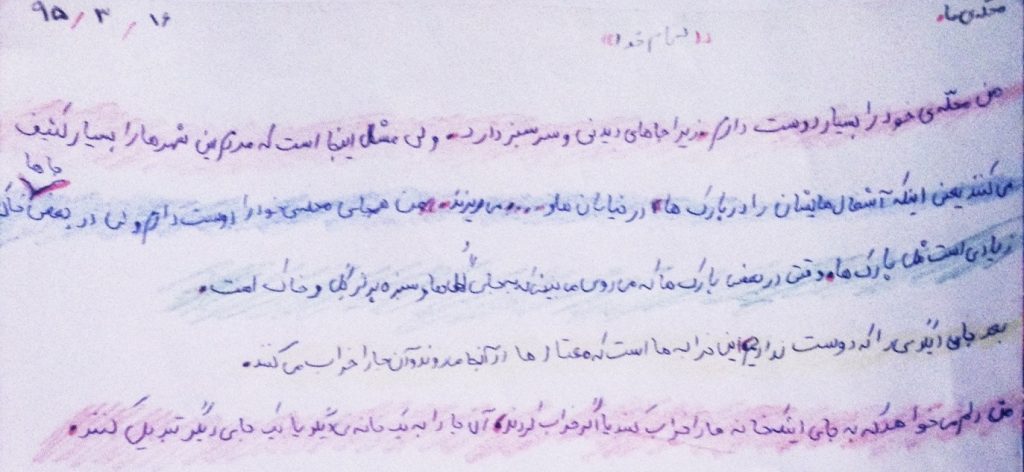 محلّه‌ی ما.
۹۵/۳/۱۶
«به نام خدا»
من محلّه‌ی خود را بسیار دوست دارم. زیرا جاهای دیدنی و سرسبز دارد. ولی مشکل اینجا است که مردم این شهر ما را بسیار کثیف
می‌کنند یعنی اینکه آشغال‌هایشان را در پارک‌ها، در خیابان‌ها و.... می‌ریزند. من همه‌ی محله‌ی خود را دوست دارم ولی در بعضی جاها خاک
زیادی است مثل پارک‌ها. وقتی در بعضی پارک‌ها که می‌روی می‌بینی که به جای گل‌ها و سبزه پر از گِل و خاک است.
بعد جای دیگری را که دوست ندارم این خرابه‌ها است که معتادها از آنجا می‌روند و آن‌جا را خراب می‌کنند.
من دلم می‌خواهد که به جای اینکه خانه‌ها را خراب کنند یا اگر خراب کردند، آن جا را به یک خانه‌ی دیگر یا یک جای دیگر تبدیل کنند.